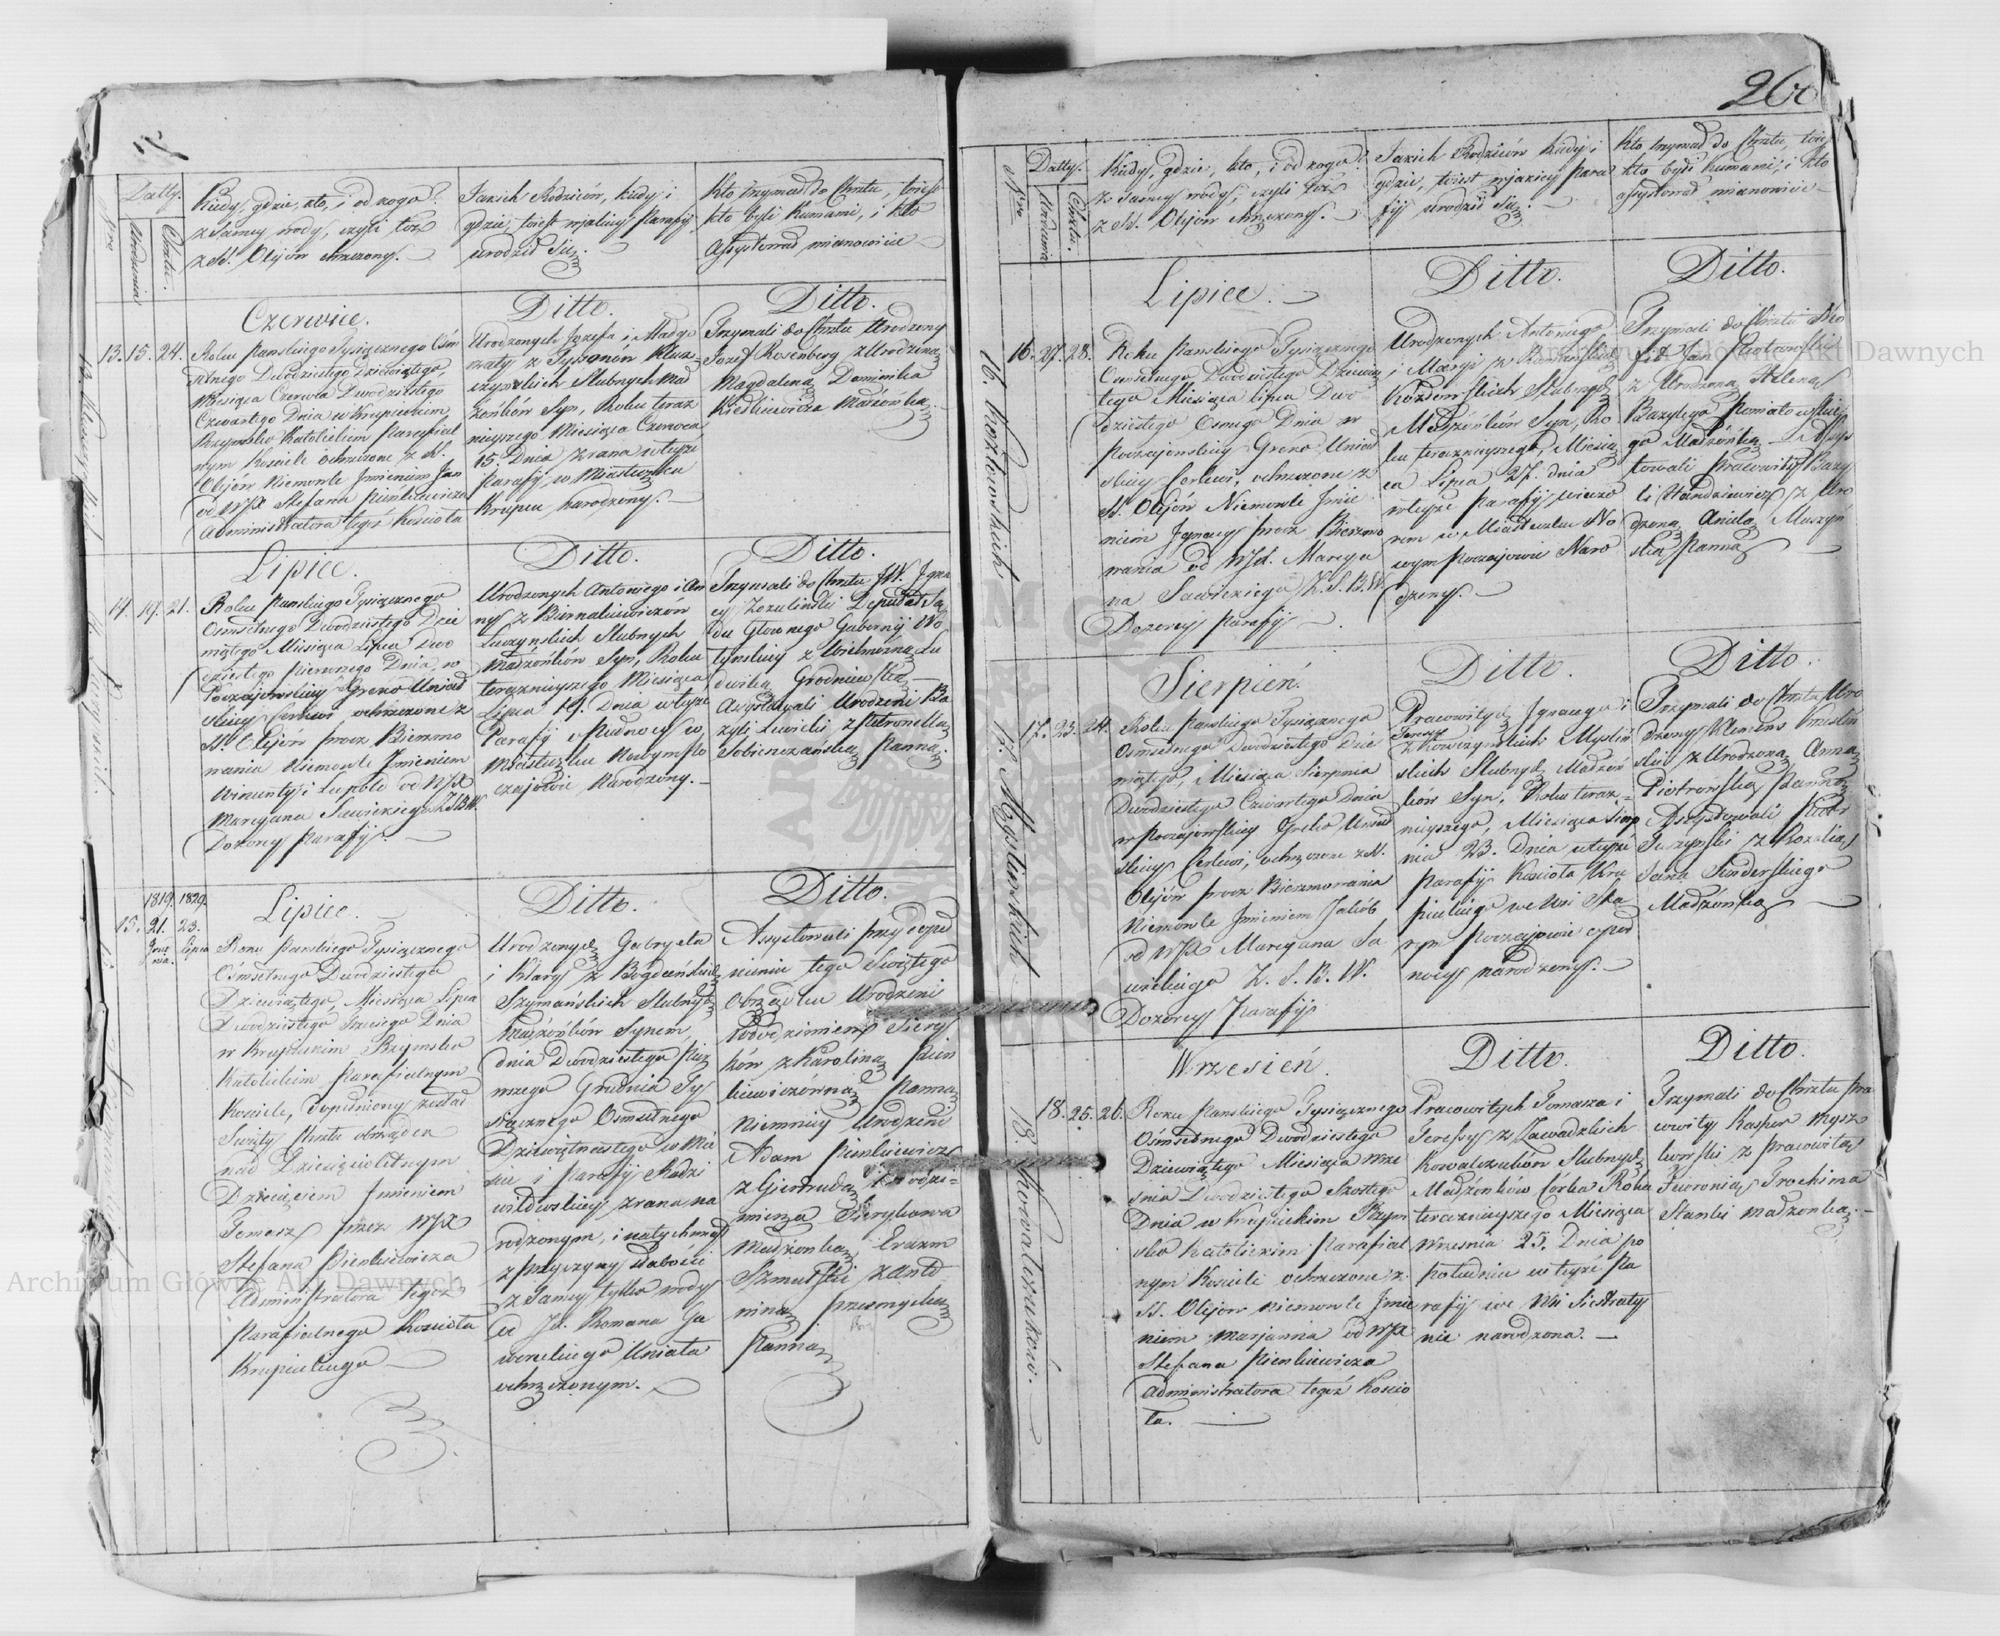 Datty.
Nro
Urodzenia
Chrztu.
Kiedy, gdzie, kto, i od kogo?
z samey wody, czyli też
z SS. Olejów chrzczony. —
Jakich Rodziców, kiedy i
gdzie, toiest w jakiey Parafij,
urodził się. —
Kto trzymał do Chrztu, toiest
kto byli Kumami, i kto
assystował mianowicie —
Czerwiec.
Ditto.
Ditto.
13. 15. 24.
Roku Pańskiego Tysiącznego Ośm
setnego Dwódziestego Dziewiątego,
Miesiąca Czerwca Dwódziestego
Czwartego Dnia w Krupieckim
Rzymsko Katolickim Parafial
nym Kościele ochrzczone z SS.
Olejów Niemowle Jmieniem Jan
od WJX Stefana Pienkiewicza
Administratora tegoż Kościoła
Urodzonych Józefa i Małgo
rzaty z
Slubnych Mał
żonków Syn, Roku teraz
nieyszego Miesiąca Czerwca
15. Dnia zrana w teyże
Parafij w Miasteczku
Krupcu narodzony. —
Trzymali do Chrztu Urodzony
Józef Rosenberg z Urodzoną
Magdaleną Dominika
Małżonką.
Lipiec.
Ditto.
Ditto.
14. 19. 21.
Roku Pańskiego Tysiącznego
Ośmsetnego Dwódziestego Dzie
wiątego Miesiąca Lipca Dwó
dziestego Pierwszego Dnia w
Poczajowskiey Greko Uniad
skiey Cerkwi ochrzczone z
SS. Olejów procz Bierzmo
wania Niemowle Jmieniem
Wincenty i Leopold od WJX
Marcyana Sawickiego Z.S.B.W.
Dozorcy Parafij. —
Urodzonych Antoniego i An
ny z Biernakiewiczów
Łuczyńskich Slubnych
Małżonków Syn, Roku
teraznieyszego Miesiąca
Lipca 19. Dnia w teyże
Parafij o Północy w
Miasteczku Nowym Po
czajowie Narodzony. —
Trzymali do Chrztu JW. Jgna
cy Deputat Są
du Głownego Gubernij Wo
łyńskiey z Wielmożną Lu
dwiką —
Assystowali Urodzeni Ba
zyli z Petronellą
Panną.
1819. 1829.
15. 21. 23.
Grud
nia. Lipca
Lipiec.
Ditto.
Ditto.
Roku Pańskiego Tysiącznego
Ośmsetnego Dwódziestego
Dziewiątego, Miesiąca Lipca
Dwódziestego Trzeciego Dnia
w Krupieckim Rzymsko
Katolickim Parafialnym
Kościele, dopełniony został
Święty Chrztu obrządek
nad Dziesięcioletnym
Dziecięciem Jmieniem
Tomasz przez WJX
Stefana Pienkiewicza
Administratora tegoż
Parafialnego Kościoła
Krupieckiego —
Urodzonych Gabryela
i Klary z Bogdańskich
Szymańskich Slubnych
Małżonków Synem
dnia Dwódziestego Pier
wszego Grudnia Ty
siącznego Ośmsetnego
Dziewiętnastego w Mie
ście i Parafij Radzi
wiłłowskiey zrana na
rodzonym, i natychmiast
z przyczyny słabości
z samey tylko wody
od Jx. Romana Ga
wereckiego Uniata
ochrzczonym. —
Assystowali przy dope
łnieniu tego Świętego
Obrządku Urodzeni
Włodzimierz Siery
ków z Karoliną Pien
kiewiczowną Panną
Niemniey Urodzeni
Adam Pienkiewicz
z Giertrudą Włodzi-
mierza Sierykowa
Małżonką, Erazm
z Anto
niną
Panną
260
Nro
Datty.
Urodzenia
Chrztu.
Kiedy, gdzie, kto, i od kogo?
z samey wody, czyli też
z SS. Olejów chrzczony. —
Jakich Rodziców kiedy i
gdzie, toiest w jakiey Para
fij urodził się. —
Kto trzymał do Chrztu, toiest
kto byli Kumami, i kto
assystował mianowicie —
Lipiec. —
Ditto.
Ditto.
16. Kozłowskich
16. 27. 28.
Roku Pańskiego Tysiącznego
Ośmsetnego Dwódziestego Dziewią
tego Miesiąca Lipca Dwó
dziestego Osmego Dnia w
Poczajowskiey Greko Uniad
skiey Cerkwi, ochrzczone z
SS. Olejów Niemowle Jmie
niem Jgnacy procz Bierzmo
wania od WJX. Marcya
na Sawickiego Z. S. B. W.
Dozorcy Parafij —
Urodzonych Antoniego
i Maryi z
Kozłowskich Slubnych
Małżonków Syn, Ro
ku teraznieyszego, Miesią
ca Lipca 27. dnia
w teyże Parafij, wieczo
rem w Miasteczku No
wym Poczajowie Naro
dzony. —
Trzymali do Chrztu
Jan Piotrowski
z Urodzoną Heleną
Bazylego Poniatowskie
go Małżonką — Assys
towali Pracowity Bazy
li z Uro
dzoną Anielą Muszyń
ską Panną —
Sierpień.
Ditto.
Ditto.
17. Myśliwskich
17. 23. 24.
Roku Pańskiego Tysiącznego
Ośmsetnego Dwódziestego Dzie
wiątego, Miesiąca Sierpnia
Dwódziestego Czwartego Dnia
w Poczajowskiey Greko Uniad
skiey Cerkwi, ochrzczone z SS.
Olejów procz Bierzmowania
Niemowle Jmieniem Jakób
od WJX Marcyana Sa
wickiego Z. S. B. W.
Dozorcy Parafij
Pracowitych Jgnacego i
Teressy
Myśliw
skich Slubnych Małżon
ków Syn, Roku teraz-
nieyszego, Miesiąca Sierp
nia 23. Dnia w teyże
Parafij Kościoła Kru
pieckiego we Wsi Sta
rym Poczajowie o pół
nocy narodzony. —
Trzymali do Chrztu Uro
dzony Klemens
ski z Urodzoną Anną
Piotrowską Panną
Assystowali Piotr
z Rozalią
Jana
Małżonką —
Wrzesień.
Ditto.
Ditto.
18. Kowalczuków.
18. 25. 26.
Roku Pańskiego Tysiącznego
Ośmsetnego Dwódziestego
Dziewiątego Miesiąca Wrze
śnia Dwódziestego Szostego
Dnia w Krupieckim Rzym
sko Katolickim Parafial
nym Kościele ochrzczone z
SS. Olejów niemowle Jmie
niem Marjanna od WJX
Stefana Pienkiewicza
Administratora tegoż Kościo
ła. —
Pracowitych Tomasza i
Teressy z Zawadzkich
Kowalczuków Slubnych
Małżonków Córka Roku
teraznieyszego Miesiąca
Września 25. Dnia po
południu w teyże Pa
rafij we Wsi
nie narodzona. —
Trzymali do Chrztu Pra
cowity Kasper
z Pracowitą
Trochima
Małżonką. —
Archiwum Główne Akt Dawnych
Archiwum Główne Akt Dawnych